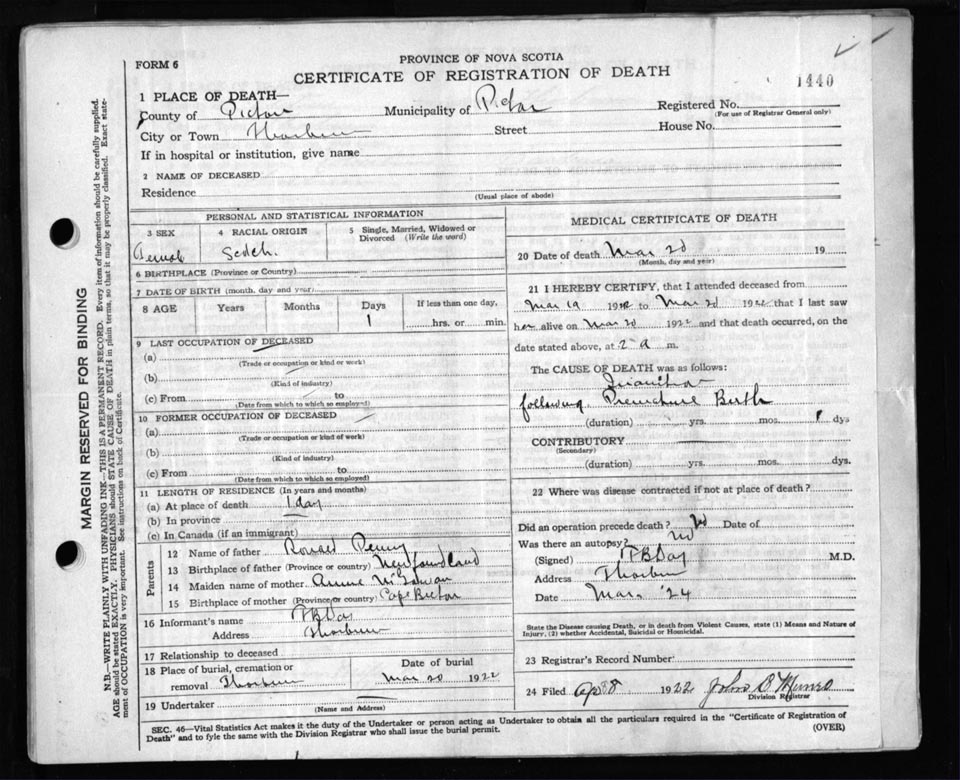 FORM 6
PROVINCE OF NOVA SCOTIA
CERTIFICATE OF REGISTRATION OF DEATH
1440
1 PLACE OF DEATH—
County of Pictou Municipality of Pictou Registered No.
(For use of Registrar General only)
City or Town Thorburn Street House No.
If in hospital or institution, give name
2 NAME OF DECEASED
Residence
(Usual place of abode)
PERSONAL AND STATISTICAL INFORMATION
3 SEX 4 RACIAL ORIGIN 5 Single, Married, Widowed or Divorced (Write the word)
Female Scotch
6 BIRTHPLACE (Province or Country)
7 DATE OF BIRTH (month, day and year)
8 AGE Years Months Days If less than one day,
1 hrs. or min.
9 LAST OCCUPATION OF DECEASED
(a)
(Trade or occupation or kind of work)
(b)
(Kind of industry)
(c) From to
(Date from which to which so employed)
10 FORMER OCCUPATION OF DECEASED
(a)
(Trade or occupation or kind of work)
(b)
(Kind of industry)
(c) From to
(Date from which to which so employed)
11 LENGTH OF RESIDENCE (In years and months)
(a) At place of death 1 day
(b) In province
(c) In Canada (if an immigrant)
Parents
12 Name of father Ronald Penny
13 Birthplace of father (Province or country) Newfoundland
14 Maiden name of mother Annie
15 Birthplace of mother (Province or country) Cape Breton
16 Informant's name Day
Address Thorburn
17 Relationship to deceased
18 Place of burial, cremation or Date of burial
removal Thorburn Mar 20 1922
19 Undertaker
(Name and Address)
MEDICAL CERTIFICATE OF DEATH
20 Date of death Mar 20 19
(Month, day and year)
21 I HEREBY CERTIFY, that I attended deceased from
Mar 19 1922 to Mar 20 1922 that I last saw
her alive on Mar 20 1922 and that death occurred, on the
date stated above, at 2 a m.
The CAUSE OF DEATH was as follows:
Inanition
following Premature Birth
(duration) yrs. mos. 1 dys
CONTRIBUTORY
(Secondary)
(duration) yrs. mos. dys.
22 Where was disease contracted if not at place of death?
Did an operation precede death? No Date of
Was there an autopsy? No
(Signed) Day M.D.
Address Thorburn
Date Mar. '24
State the Disease causing Death, or in death from Violent Causes, state (1) Means and Nature of
Injury, (2) whether Accidental, Suicidal or Homicidal.
23 Registrar's Record Number
24 Filed Apr 8 1922 John D Munro
Division Registrar
SEC. 46—Vital Statistics Act makes it the duty of the Undertaker or person acting as Undertaker to obtain all the particulars required in the "Certificate of Registration of
Death" and to fyle the same with the Division Registrar who shall issue the burial permit. (OVER)
MARGIN RESERVED FOR BINDING
N.B.—WRITE PLAINLY WITH UNFADING INK—THIS IS A PERMANENT RECORD. Every item of information should be carefully supplied.
AGE should be stated EXACTLY. PHYSICIANS should STATE CAUSE OF DEATH in plain terms, so that it may be properly classified. Exact state-
ment of OCCUPATION is very important. See instructions on back of Certificate.